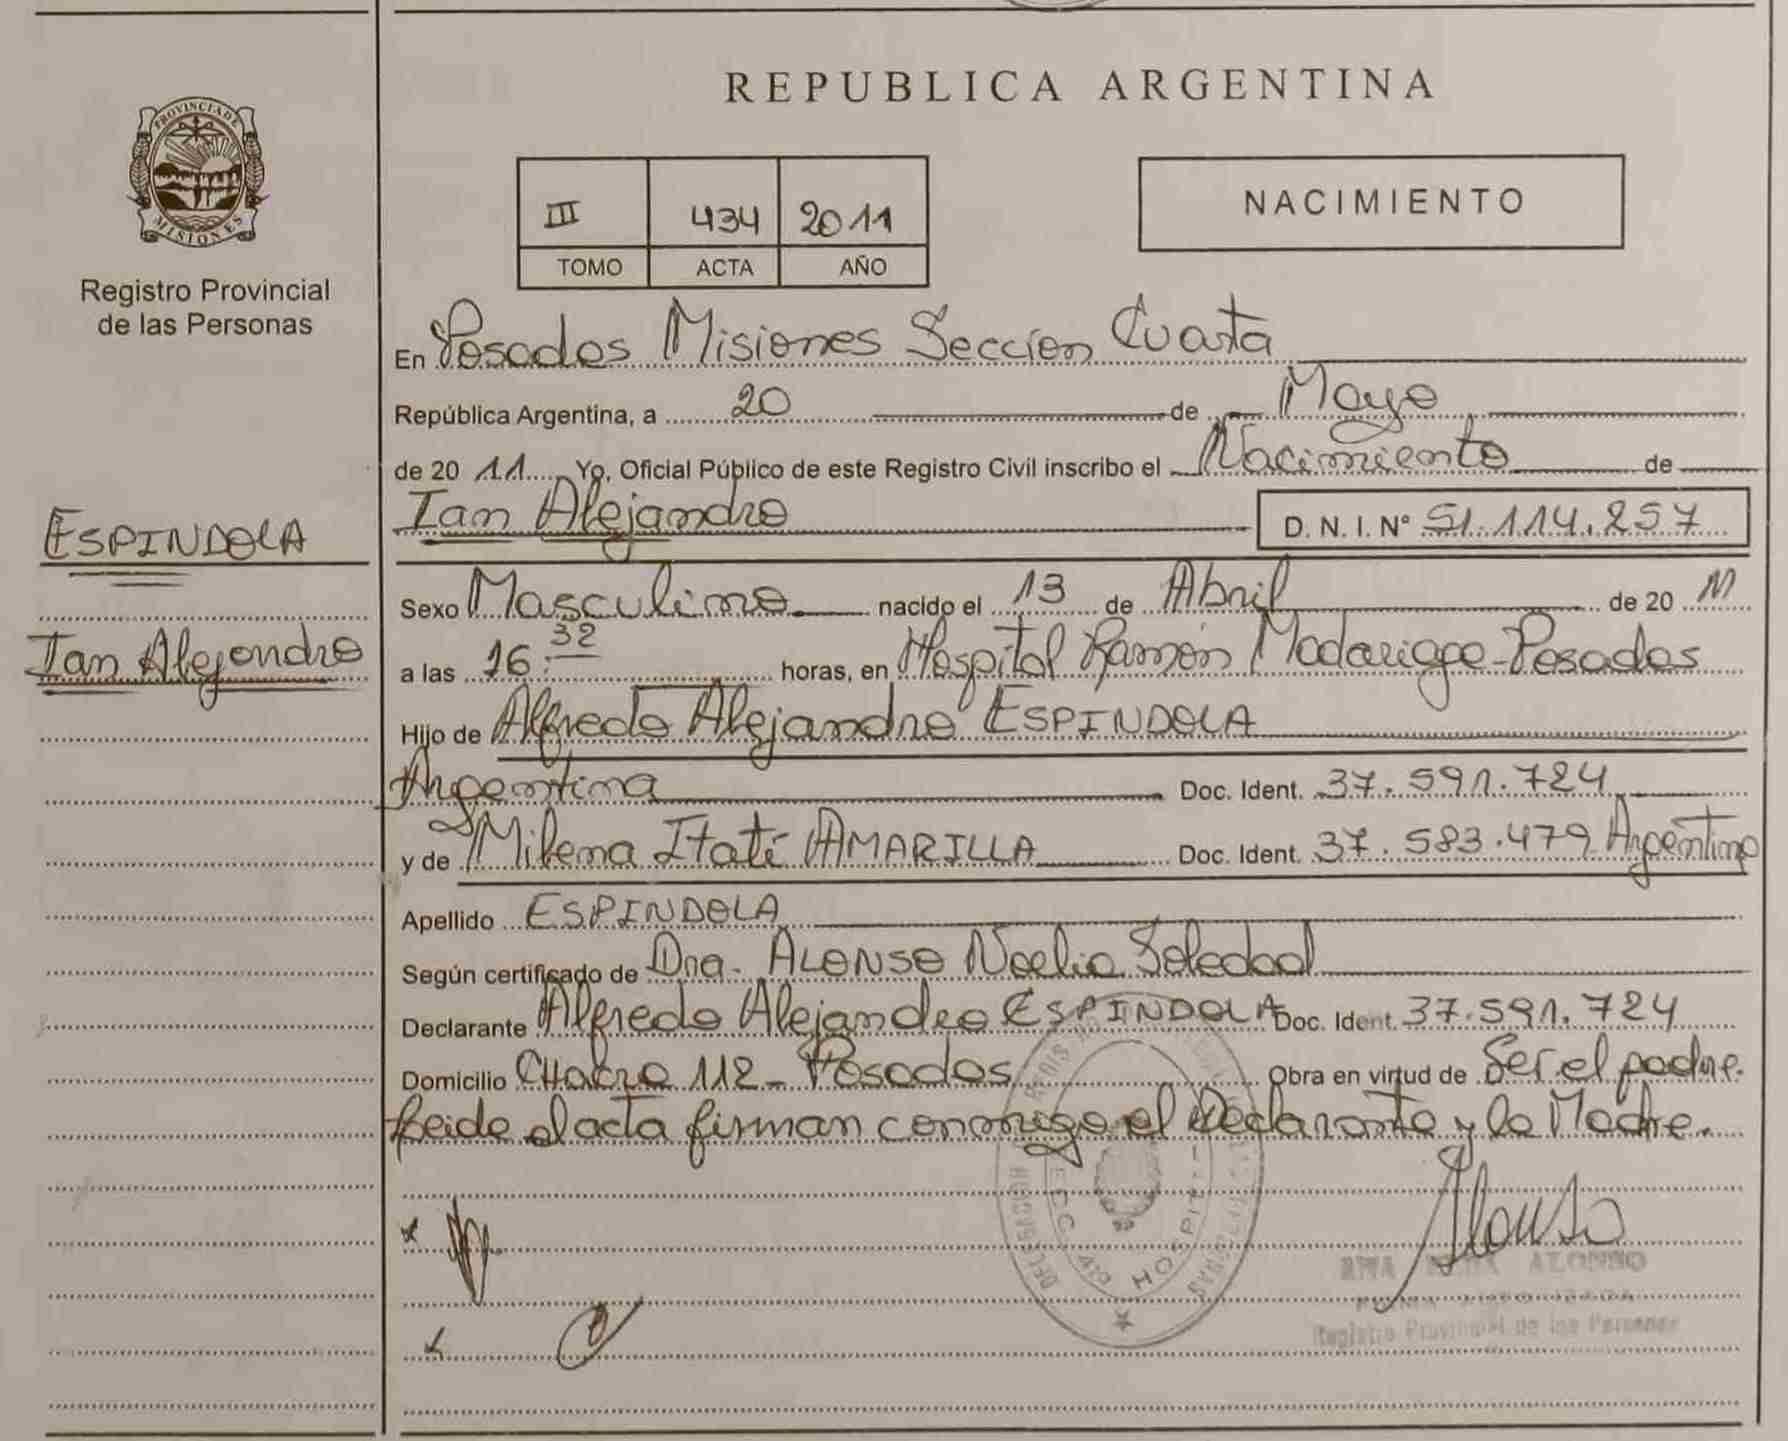 REPUBLICA ARGENTINA
PROVINCIA DE MISIONES
Registro Provincial
de las Personas
III 434 2011
TOMO ACTA AÑO
NACIMIENTO
En Posadas Misiones Seccion Cuarta
República Argentina, a 20 de Mayo
de 20 11 Yo, Oficial Público de este Registro Civil inscribo el Nacimiento de
Ian Alejandro D. N. I. N° 51.114.257
ESPINDOLA
Ian Alejandro
Sexo Masculino nacido el 13 de Abril de 20 11
a las 16:32 horas, en Hospital Ramón Madariaga-Posadas
Hijo de Alfredo Alejandro ESPINDOLA
Argentina Doc. Ident. 37.591.724
y de Milena Itatí AMARILLA Doc. Ident. 37.583.479 Argentina
Apellido ESPINDOLA
Según certificado de Dra. ALONSO Noelia Soledad
Declarante Alfredo Alejandro ESPINDOLA Doc. Ident. 37.591.724
Domicilio CHacra 112 - Posadas Obra en virtud de Ser el padre.
Leida el acta firman conmigo el Declarante y la Madre.
Alonso
ALONSO
Registro Provincial de las Personas
HOSPITAL